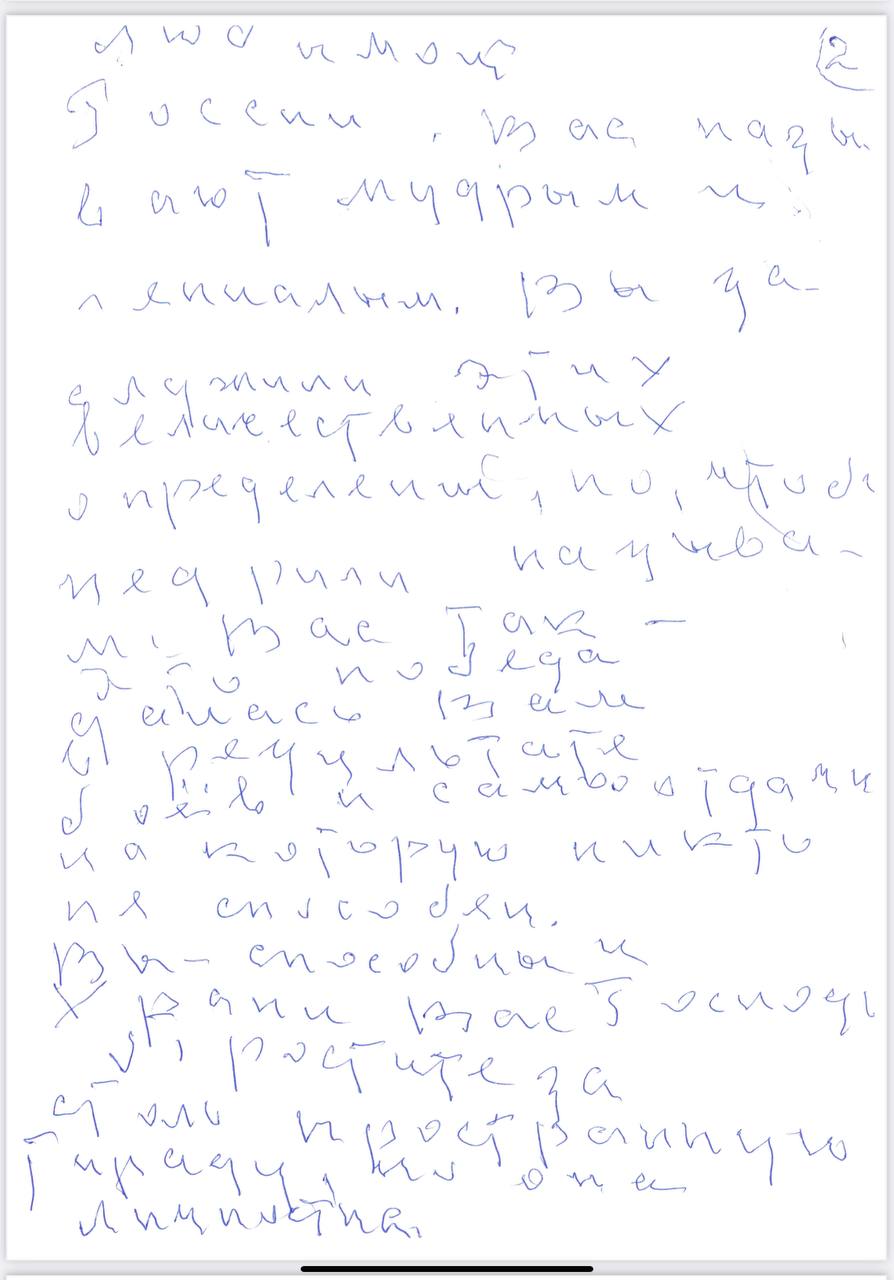 2
России. Вас назы
вают мудрым и
гениалым. Вы за-
служили этих
величественных
определений, но, чтоб
недруги называ-
ли Вас так -
это победа
далась Вам
в результате
боёв и самоотдачи
на которую никто
не способен.
Вы - способны и
храни Вас Господь
простите за
столь пространную
тираду, но она